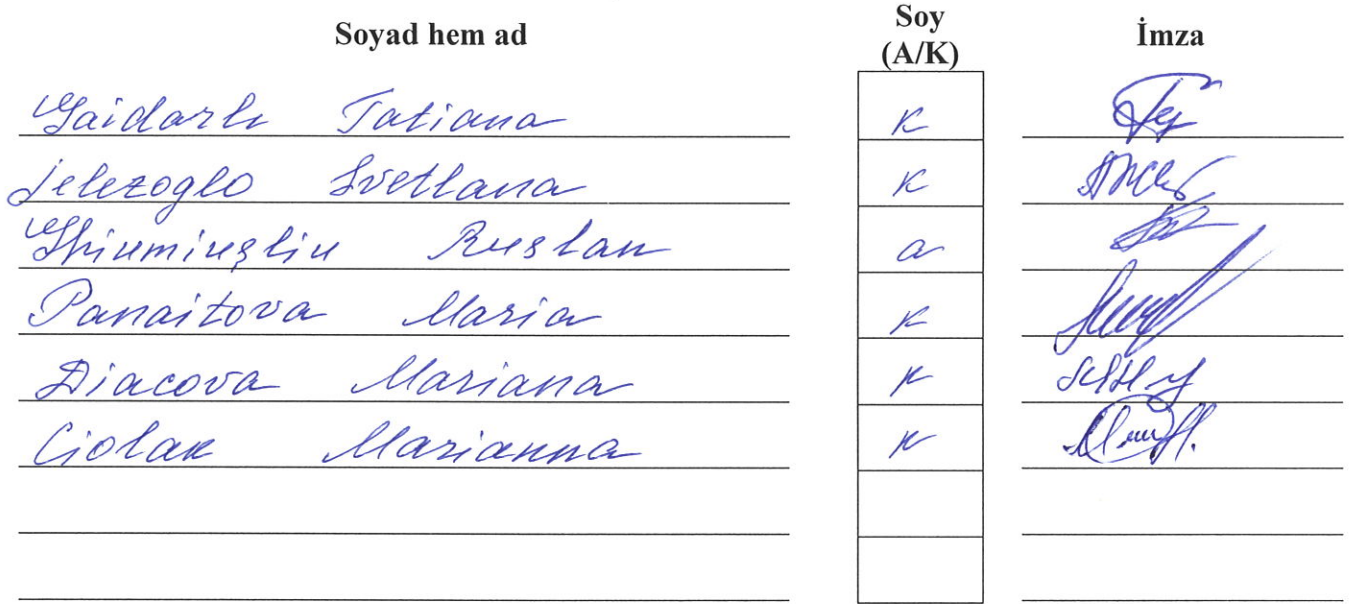 Soyad hem ad Soy (A/K) İmza
Gaidarlı Tatiana K
Jelezoglo Svetlana K
Ruslan a
Panaitova Maria K
Diacova Mariana K
Ciolak Marianna K